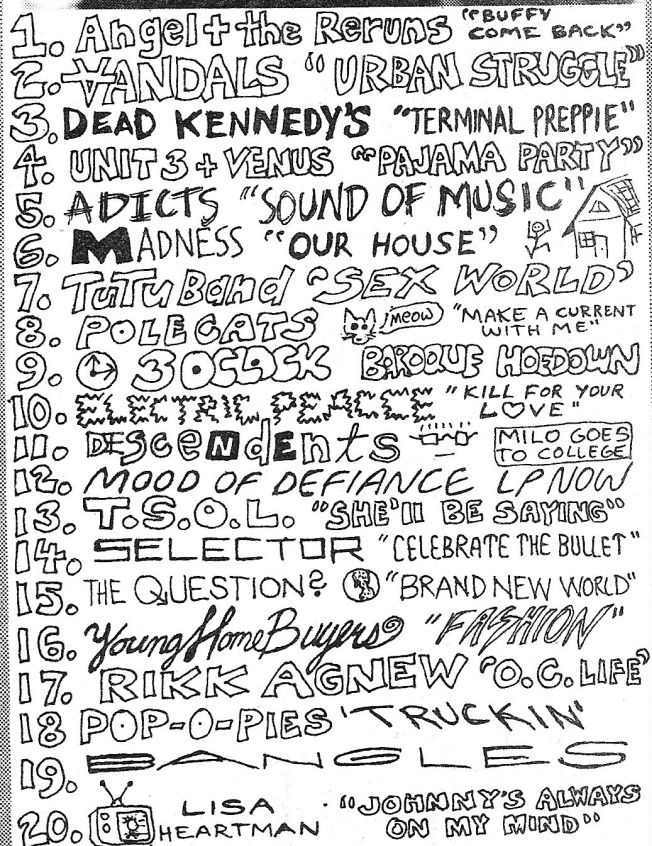 1. Angel + the Reruns "BUFFY COME BACK"
2. VANDALS "URBAN STRUGGLE"
3. DEAD KENNEDY'S "TERMINAL PREPPIE"
4. UNIT 3 + VENUS "PAJAMA PARTY"
5. ADICTS "SOUND OF MUSIC"
6. MADNESS "OUR HOUSE"
7. TuTu Band "SEX WORLD"
8. POLECATS meow "MAKE A CURRENT WITH ME"
9. 3 OCLOCK BAROQUE HOEDOWN
10. ELECTRIC PEACE "KILL FOR YOUR L♡VE"
11. DESceNdEnts MILO GOES TO COLLEGE
12. MOOD OF DEFIANCE LP NOW
13. T.S.O.L. "SHE'll BE SAYING"
14. SELECTOR "CELEBRATE THE BULLET"
15. THE QUESTION? "BRAND NEW WORLD"
16. Young Home Buyers "FASHION"
17. RIKK AGNEW "O.C. LIFE"
18 POP-O-PIES 'TRUCKIN'
19. BANGLES
20. LISA HEARTMAN "JOHNNY'S ALWAYS ON MY MIND"